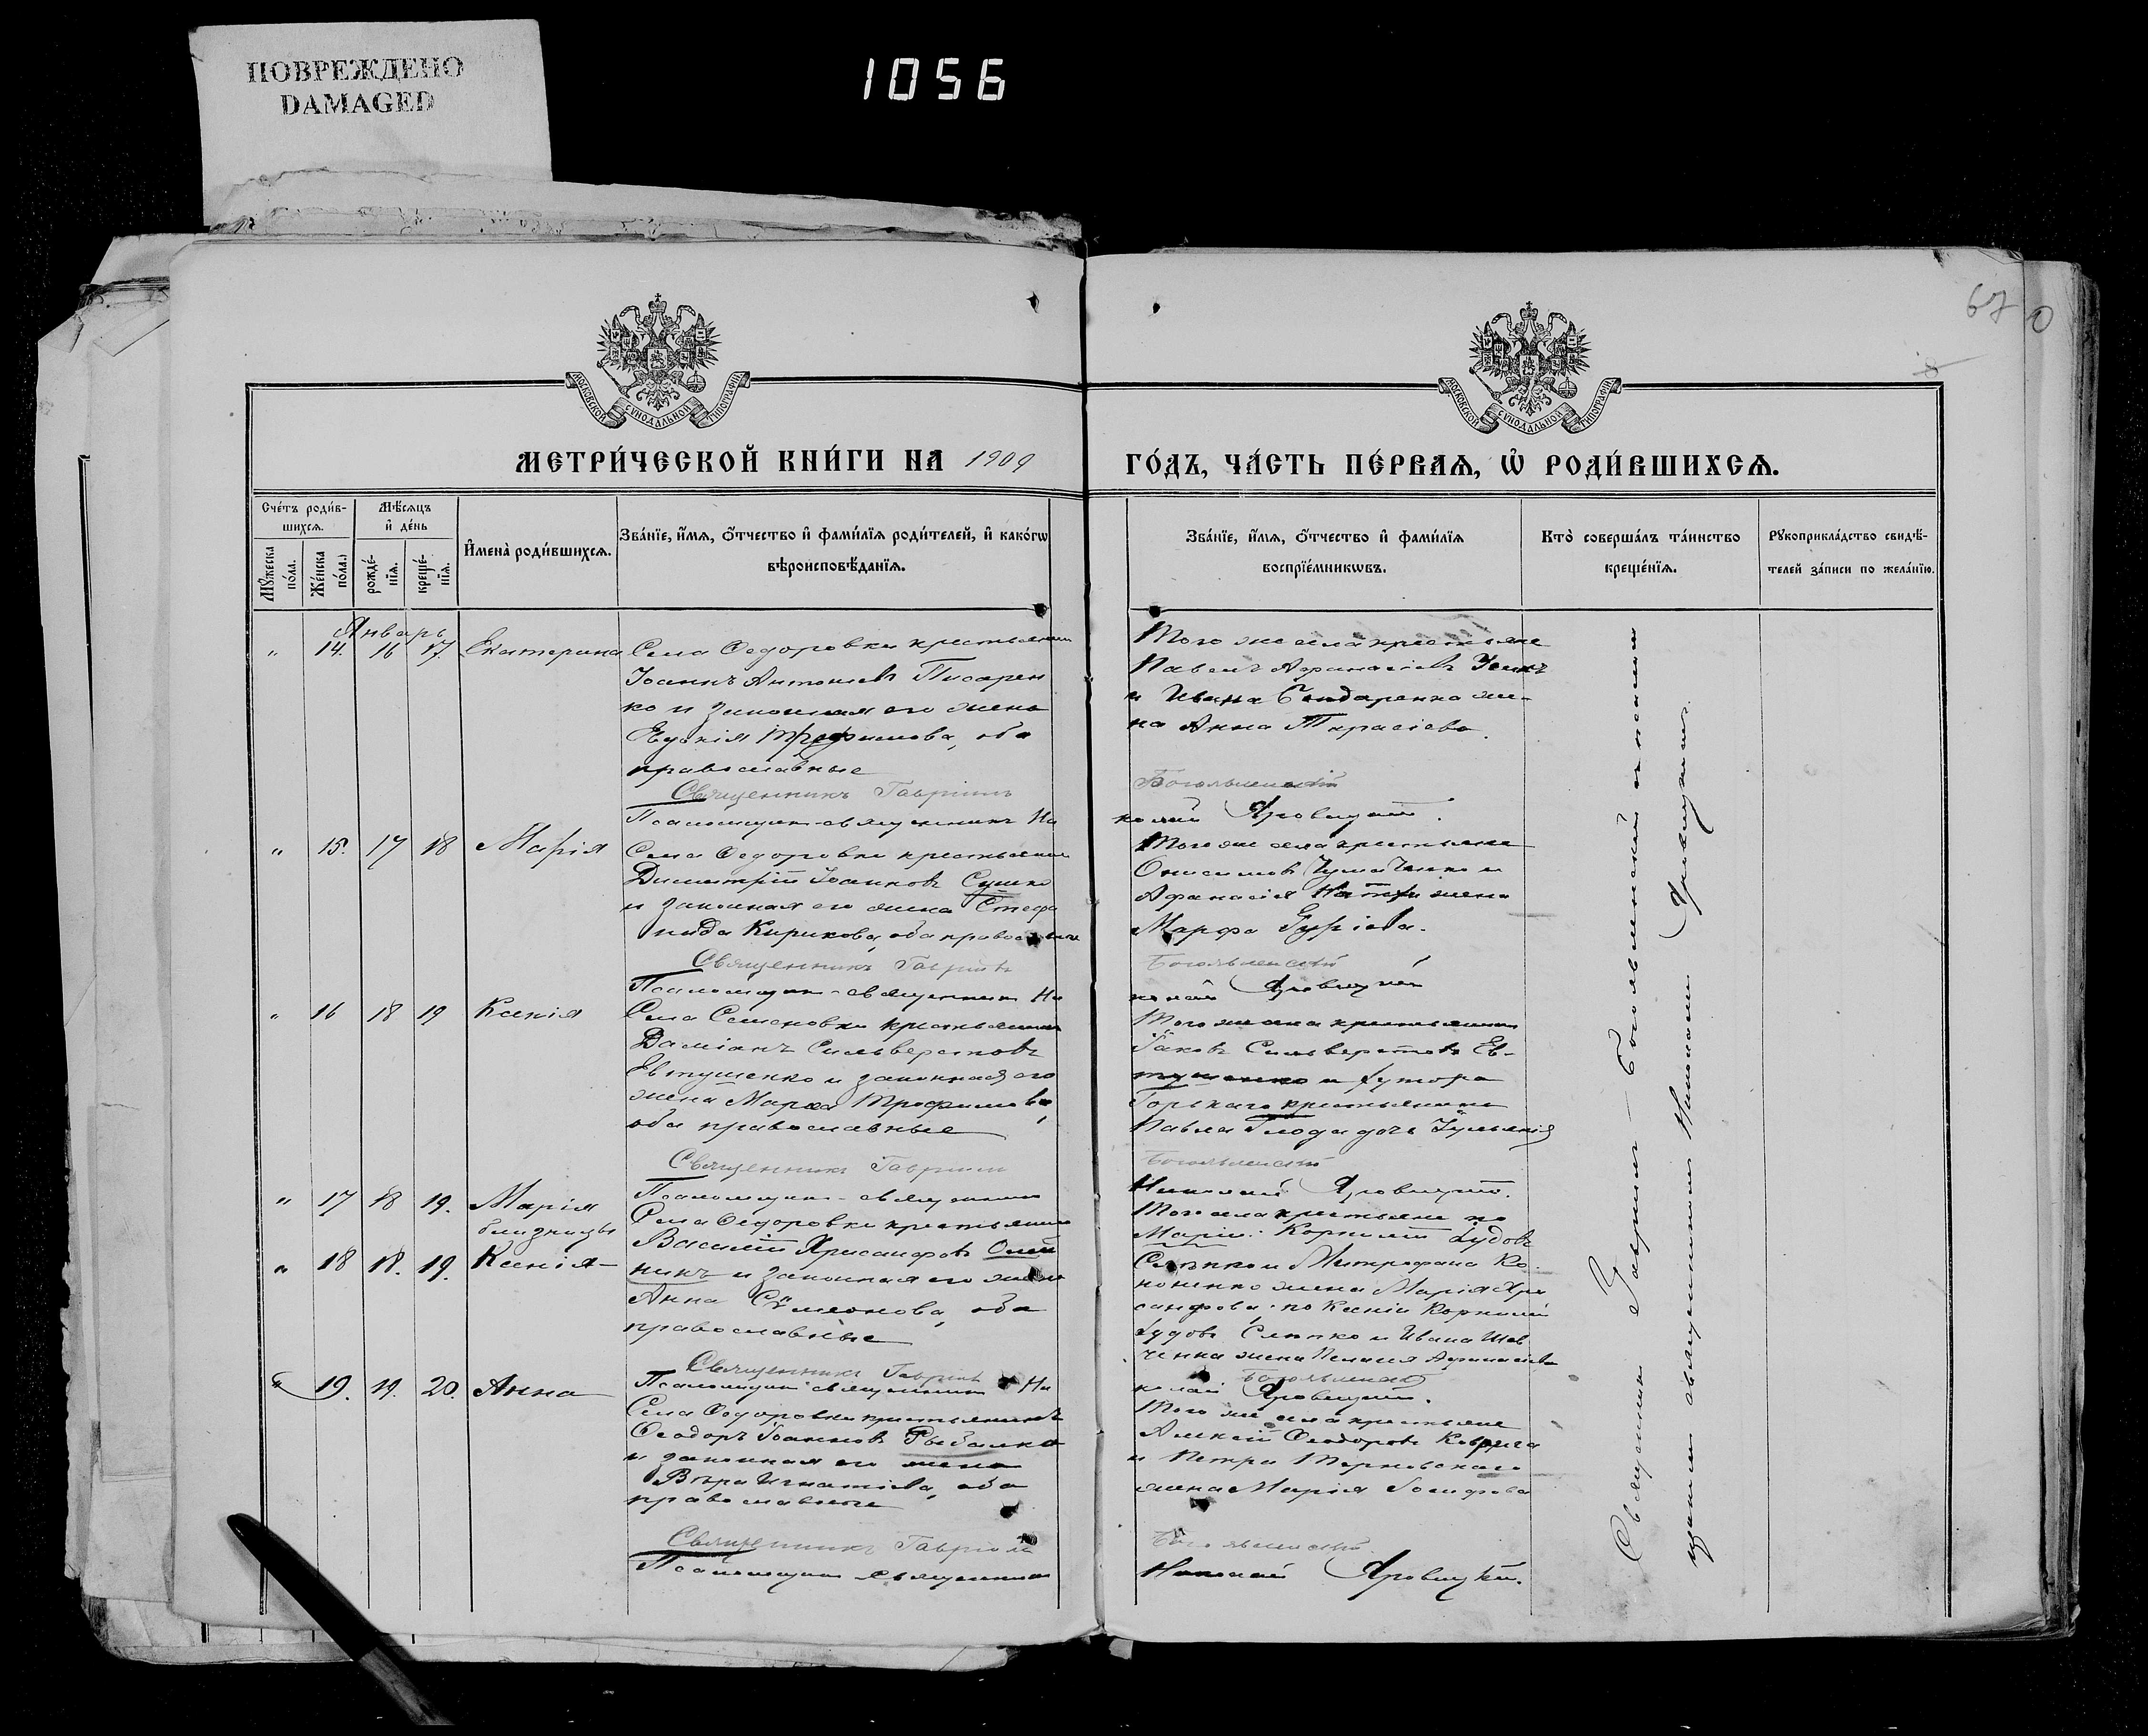 ПОВРЕЖДЕНО
DAMAGED
1056
67
МОСКОВСКОЙ СѴНОДАЛЬНОЙ ТИПОГРАФІИ
МОСКОВСКОЙ СѴНОДАЛЬНОЙ ТИПОГРАФІИ
МЕТРИ́ЧЕСКОЙ КНИ́ГИ НА 1909
ГО́ДЪ, ЧА́СТЬ ПЕ́РВАѦ, Ѽ РОДИ́ВШИХСѦ.
Сче́тъ роди́в-
шихсѧ.
Мѣ́сѧцъ
и҆ де́нь
Мꙋ́жеска
по́ла.
Же́нска
по́ла.
рожде́-
нїѧ.
креще́-
нїѧ.
И҆мена̀ роди́вшихсѧ.
Зва́нїе, и҆́мѧ, ѻ҆́тчество и҆ фами́лїѧ роди́телей, и҆ како́гѡ
вѣроисповѣ́данїѧ.
Зва́нїе, и҆́мѧ, ѻ҆́тчество и҆ фами́лїѧ
воспрїе́мникѡвъ.
Кто̀ соверша́лъ та́инство
креще́нїѧ.
Рꙋкоприкла́дство свидѣ́-
телей за́писи по жела́нїю.
Январь
" 14. 16 17. Екатерина
Села Ѳедоровки крестьянин
Іоаннъ Антоніевъ Писарен
ко и законная его жена
Евдокія Трофимова, оба
православные
Священникъ Гавріилъ
Псаломщик-священникъ Ни
Того же села крестьяне
Павелъ Афанасіевъ
и Ивана Бондаренко же-
на Анна Тарасіева.
Богоявленскій
колай Яровицкій.
" 15. 17 18 Марія
Села Ѳедоровки крестьянин
Димитрій Іоанновъ Сушко
и законная его жена Стефа
нида Кирикова, оба православные
Священникъ Гавріилъ
Псаломщик-священникъ Ни
Того же села крестьяне
Афанасія жена
Марфа Гуріева.
Богоявленскій
колай Яровицкій
" 16 18 19 Ксенія
Села Семеновки крестьянин
Даміанъ Сильверстовъ
Евтушенко и законная его
жена Марѳа Трофимова,
оба православные
Священникъ Гавріилъ
Псаломщик-священникъ
Того же села крестьянин
Іаковъ Сильверстовъ Ев-
тушенко и хутора
Горькаго крестьянина
Павла дочь Іуліанія
Богоявленскій
Николай Яровицкій.
" 17 18 19. Марія
близнецы
" 18 18. 19. Ксенія
Села Ѳедоровки крестьянин
Василій Хрисанфовъ Олей
никъ и законная его жена
Анна Сѵмеонова, оба
православные
Священникъ Гавріилъ
Псаломщик священникъ Ни
Того села крестьяне по
Маріи: Корнилій Іудовъ
Слепко и Митрофана Ко-
ноненко жена Марія Хри
санфова; по Ксеніи Корнилій
Іудовъ Слепко и Ивана Шев
ченка жена Пелагія Афанасіева
Богоявленскій
колай Яровицкій.
" 19. 19. 20. Анна
Села Ѳедоровки крестьянинъ
Ѳеодоръ Іоанновъ Рыбалко
и законная его жена
Вѣра Игнатіева, оба
православные
Священникъ Гавріилъ
Псаломщик священникъ
Того же села крестьяне
Алексій Ѳеодоровъ Коврига
и Петра Терновскаго
жена Марія Іосифова
Богоявленскій
Николай Яровицкій.
Священникъ Гавріилъ Богоявленскій с псалом
щикомъ священникомъ Николаемъ Яровицкимъ.